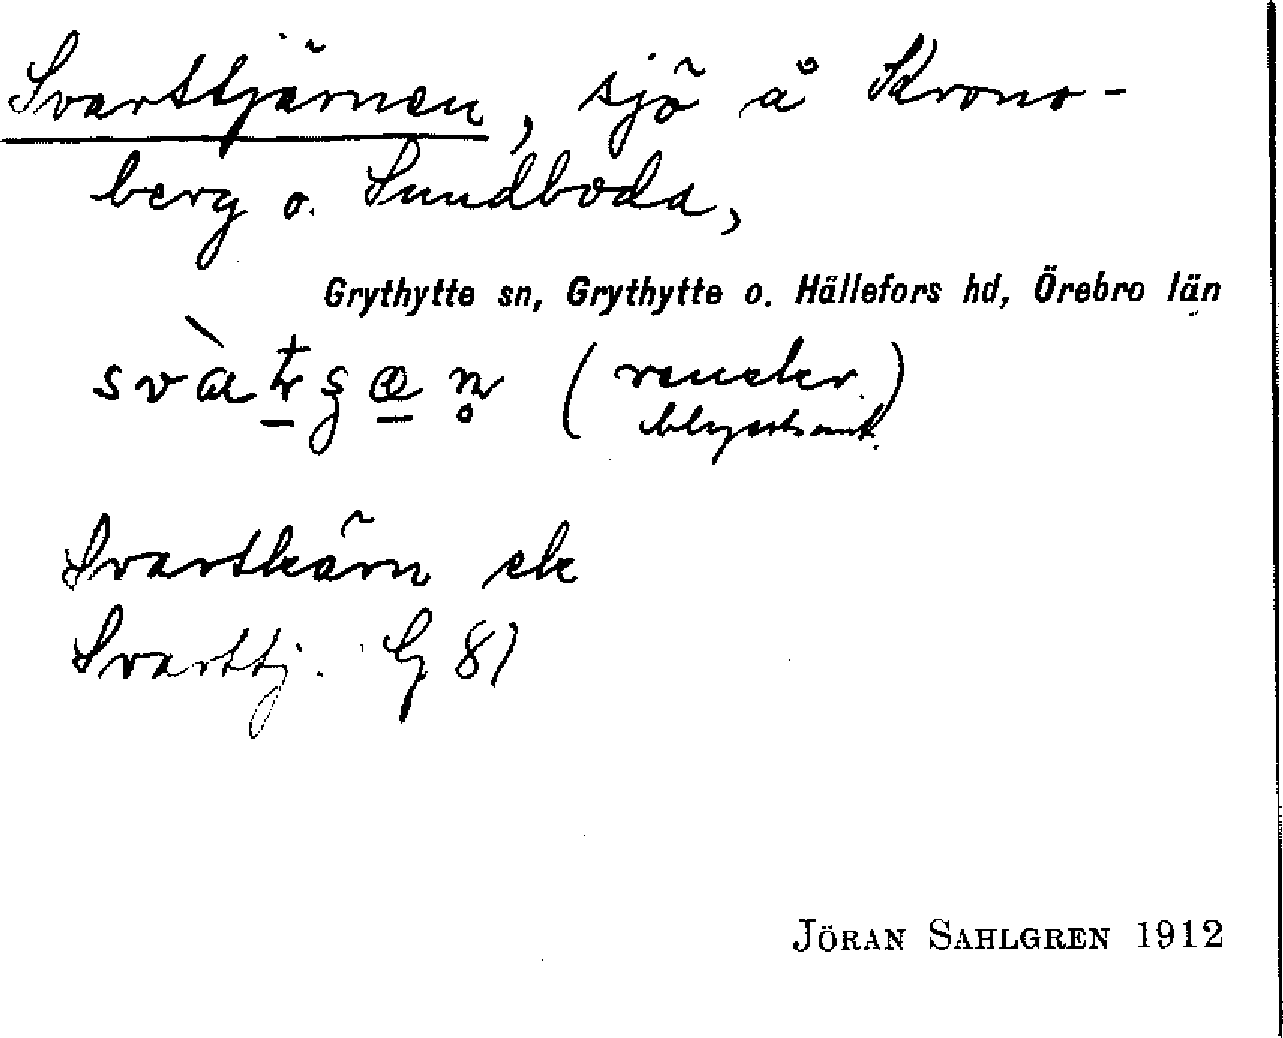 Svarttjärnen, sjö å Krono-
berg o. Sundboda,
Grythytte sn, Grythytte o. Hällefors hd, Örebro län
(
blygsamt.)
Svartkärn ek
Svarttj. G 87
JÖRAN SAHLGREN 1912